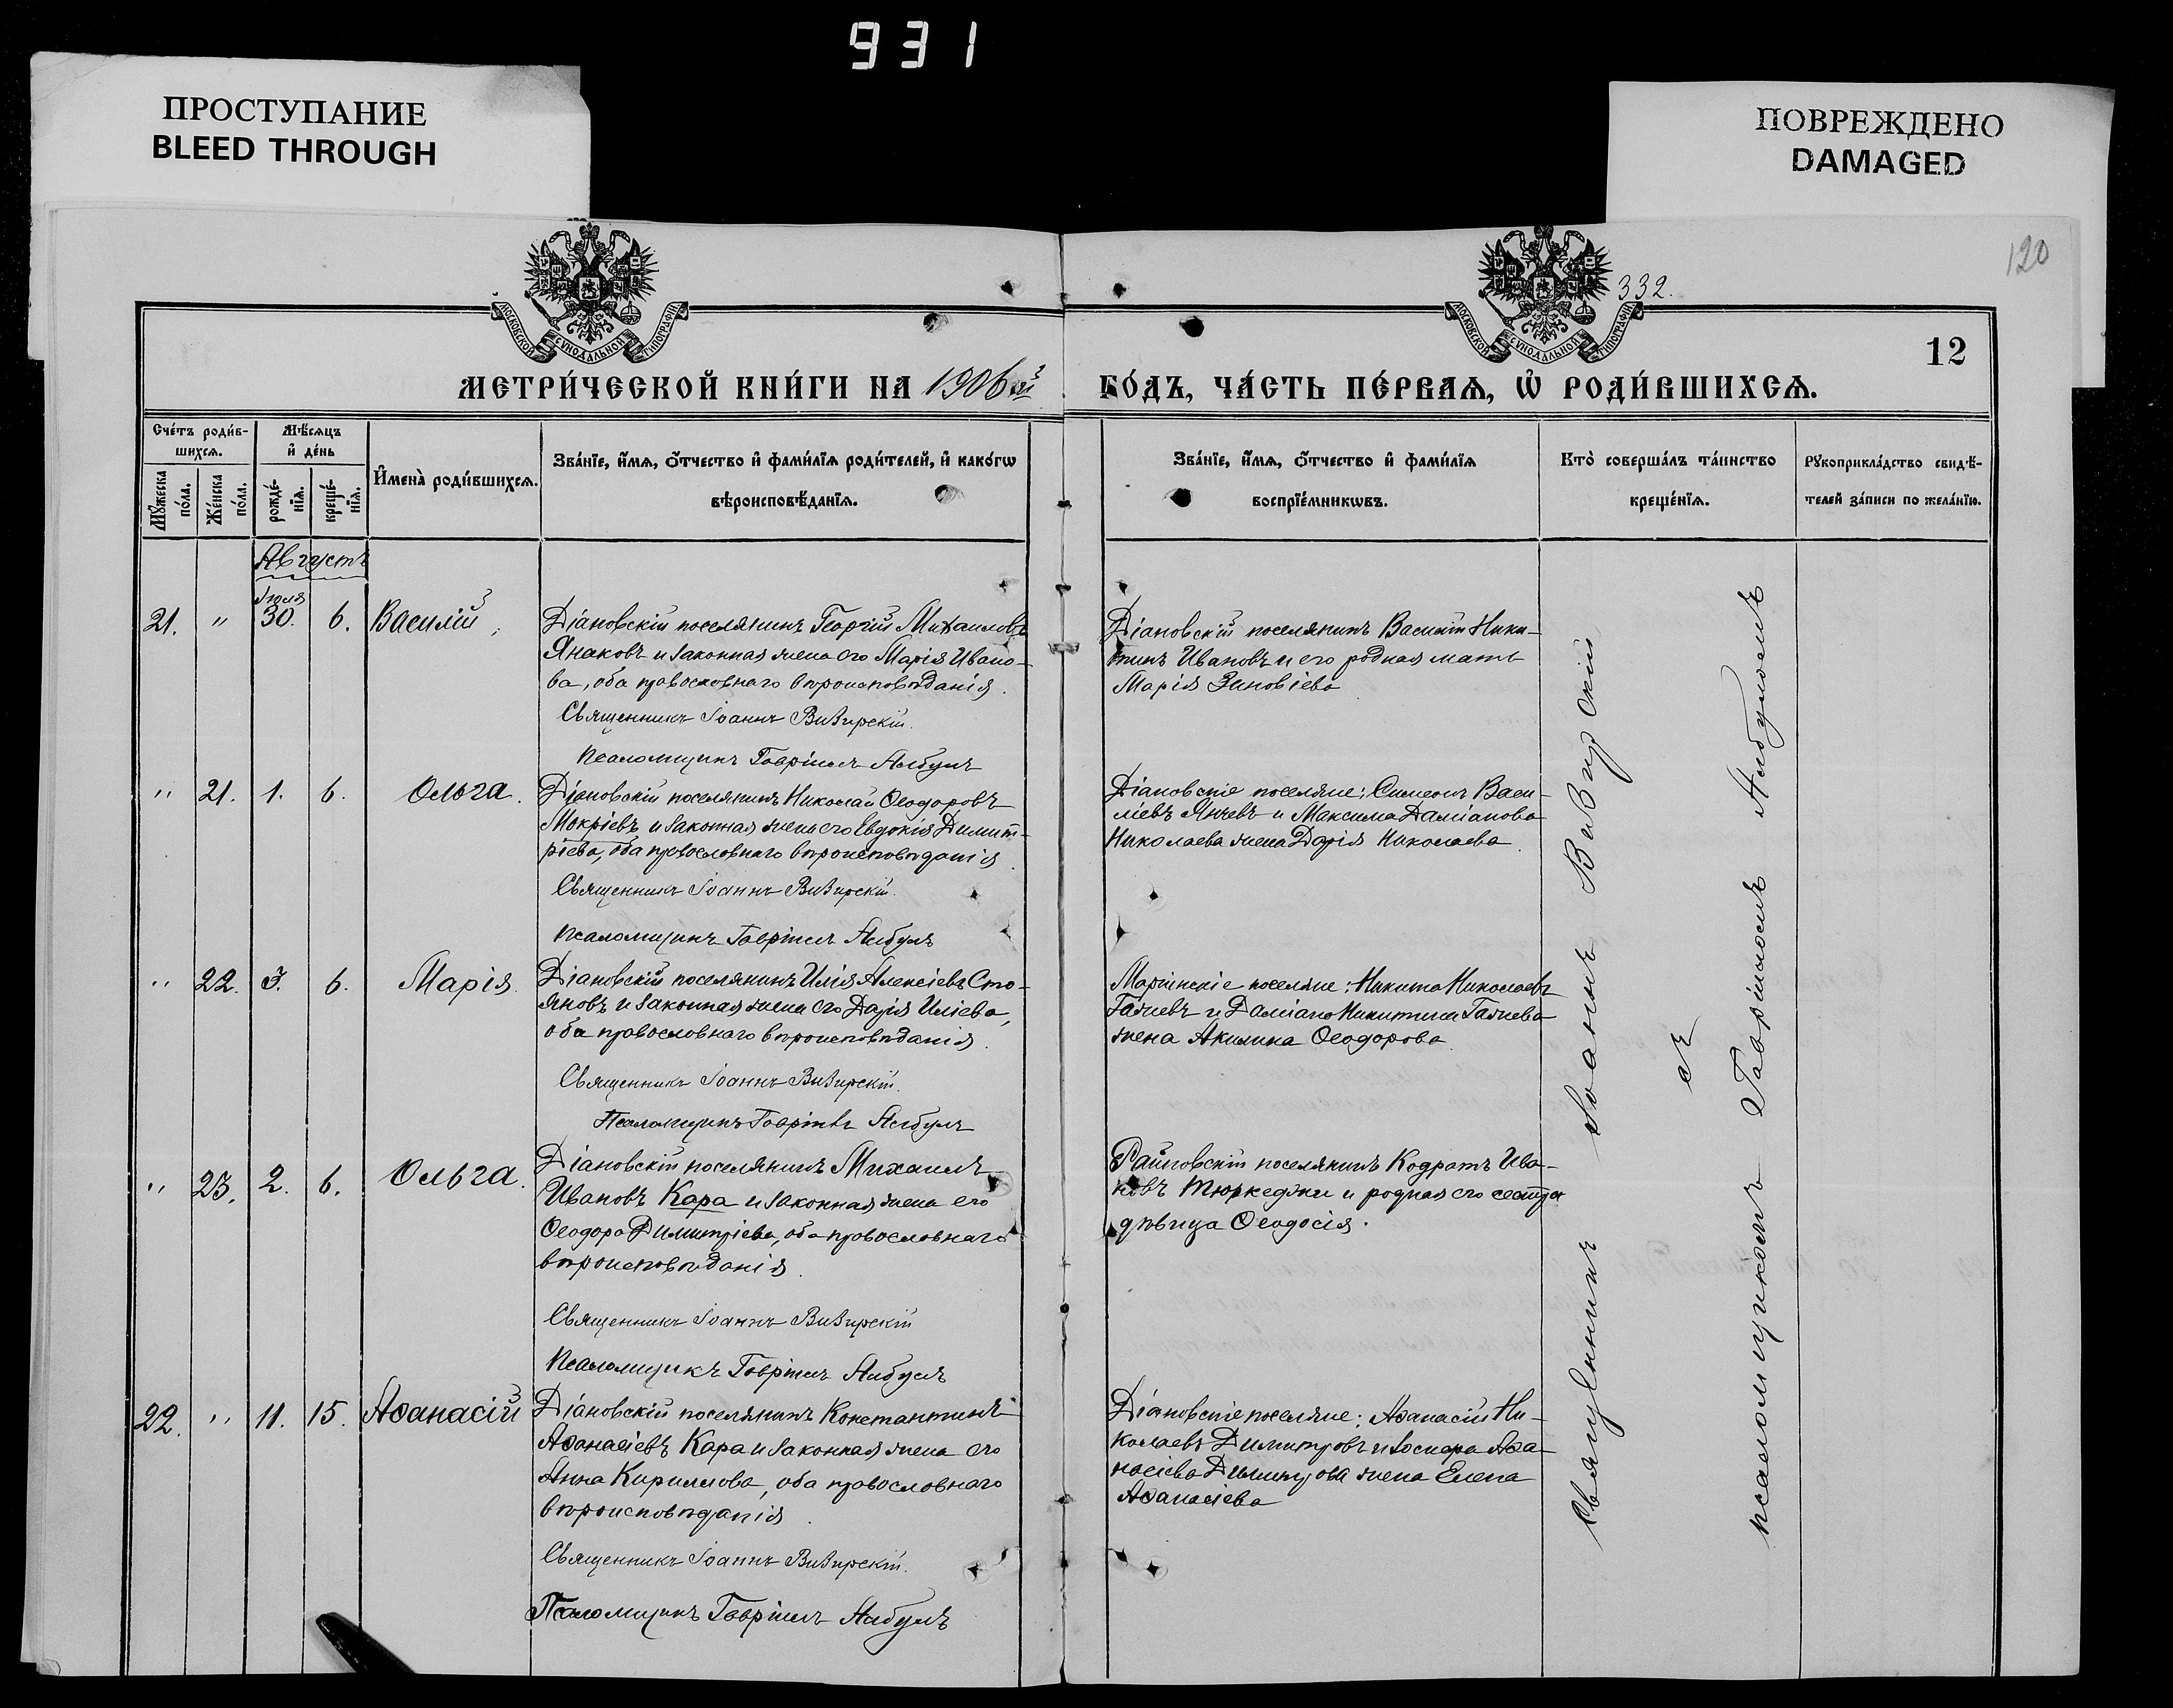 931
ПРОСТУПАНИЕ
BLEED THROUGH
ПОВРЕЖДЕНО
DAMAGED
120
332.
МОСКОВСКОЙ СѴНОДАЛЬНОЙ ТИПОГРАФІИ
МОСКОВСКОЙ СѴНОДАЛЬНОЙ ТИПОГРАФІИ
12
МЕТРИ́ЧЕСКОЙ КНИ́ГИ НА 1906 й
ГО́ДЪ, ЧА́СТЬ ПЕ́РВАѦ, Ѡ҆ РОДИ́ВШИХСѦ.
Сче́тъ роди́в-
шихсѧ.
Мꙋ́жеска по́ла.
Же́нска по́ла.
Мѣ́сѧцъ
и҆ де́нь
рожде́-
нїѧ.
креще́-
нїѧ.
И҆мена̀ роди́вшихсѧ.
Зва́нїе, и҆́мѧ, ѻ҆́тчество и҆ фами́лїѧ роди́телей, и҆ како́гѡ
вѣроисповѣ́данїѧ.
Зва́нїе, и҆́мѧ, ѻ҆́тчество и҆ фами́лїѧ
воспрїе́мникѡвъ.
Кто̀ соверша́лъ та́инство
креще́нїѧ.
Рꙋкоприкла́дство свидѣ́-
телей за́писи по жела́нїю.
Августъ
Іюля
21. " 30. 6. Василій
Діановскій поселянинъ Георгій Михаиловъ
Янаковъ и законная жена его Марія Ивано-
ва, оба православнаго вѣроисповѣданія.
Священникъ Іоаннъ Визирскій.
Псаломщикъ Гавріилъ Албулъ
Діановскій поселянинъ Василій Ники-
тинъ Ивановъ и его родная мать
Марія Зиновіева
" 21. 1. 6. Ольга.
Діановскій поселянинъ Николай Ѳеодоровъ
Мокріевъ и законная жена его Евдокія Димит-
ріева, оба православнаго вѣроисповѣданія.
Священникъ Іоаннъ Визирскій.
Псаломщикъ Гавріилъ Албулъ
Діановскіе поселяне: Симеонъ Васи-
ліевъ Янчевъ и Максима Даміанова
Николаева жена Дарія Николаева.
" 22. 3. 6. Марія.
Діановскій поселянинъ Илія Алексіевъ Сто-
яновъ и законная жена его Дарія Иліева,
оба православнаго вѣроисповѣданія.
Священникъ Іоаннъ Визирскій.
Псаломщикъ Гавріилъ Албулъ
Маріинскіе поселяне: Никита Николаевъ
Гачевъ и Даміана Никитина Гачева
жена Акилина Ѳеодорова
" 23. 2. 6. Ольга.
Діановскій поселянинъ Михаилъ
Ивановъ Кара и законная жена его
Ѳеодора Димитріева, оба православнаго
вѣроисповѣданія.
Священникъ Іоаннъ Визирскій
Псаломщикъ Гавріилъ Албулъ
Райновскій поселянинъ Кодратъ Ива-
новъ Тюркеджи и родная его сестра
дѣвица Ѳеодосія.
22. " 11. 15. Аѳанасій
Діановскій поселянинъ Константинъ
Аѳанасіевъ Кара и законная жена его
Анна Кириллова, оба православнаго
вѣроисповѣданія.
Священникъ Іоаннъ Визирскій.
Псаломщикъ Гавріилъ Албулъ
Діановскіе поселяне: Аѳанасій Ни-
колаевъ Димитровъ и Аѳа-
насіева Димитрова жена Елена
Аѳанасіева
Священникъ Іоаннъ Визирскій
съ
псаломщикомъ Гавріиломъ Албуломъ